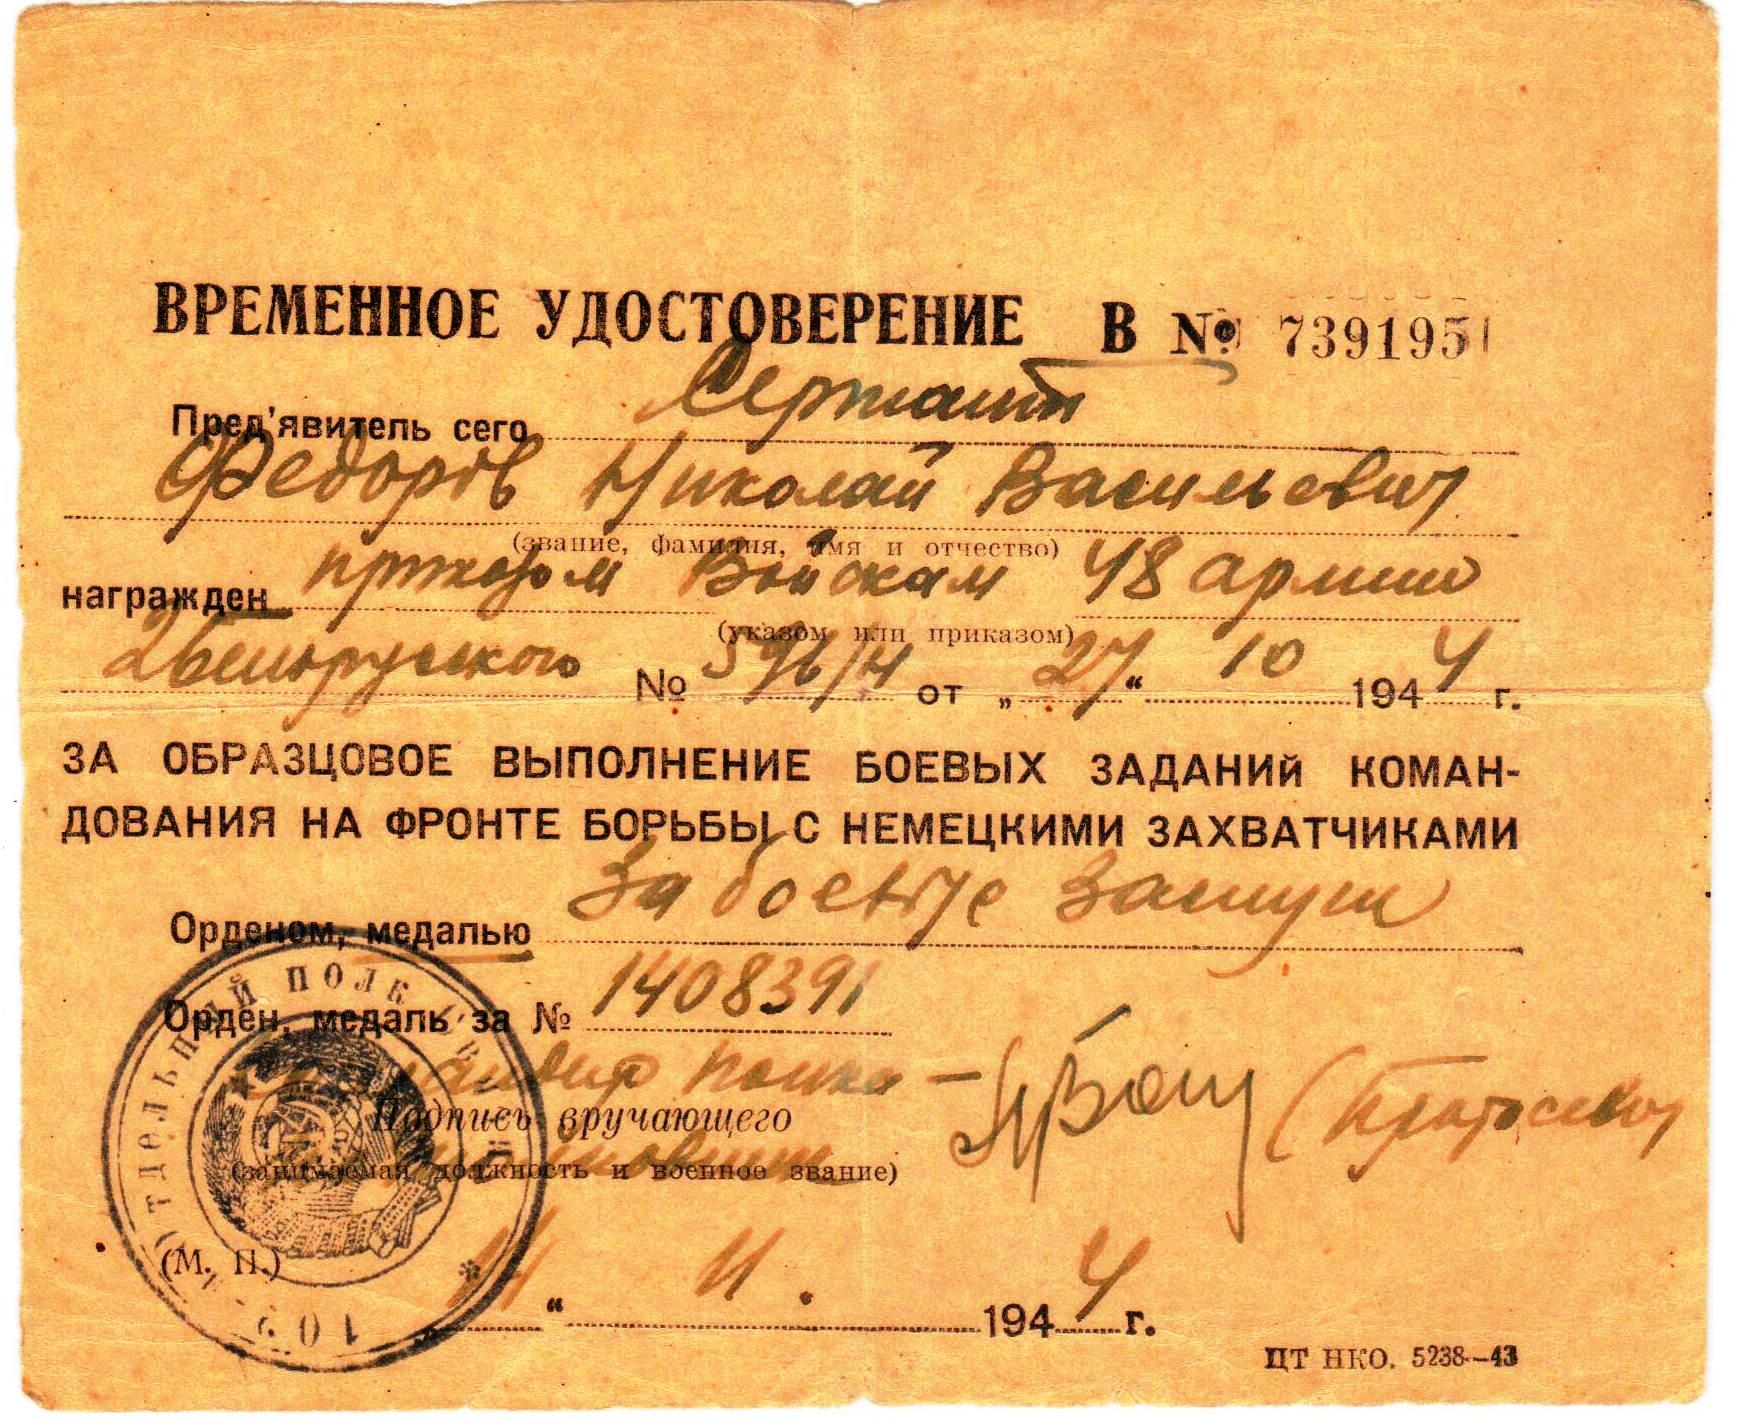 ВРЕМЕННОЕ УДОСТОВЕРЕНИЕ В № 739195
Пред'явитель сего Сержант
Федоров Николай Васильевич
(звание, фамилия, имя и отчество)
награжден приказом Войскам 48 армии
(указом или приказом)
2 Белорусского № 596/4 от „27“ 10 1944 г.
ЗА ОБРАЗЦОВОЕ ВЫПОЛНЕНИЕ БОЕВЫХ ЗАДАНИЙ КОМАН-
ДОВАНИЯ НА ФРОНТЕ БОРЬБЫ С НЕМЕЦКИМИ ЗАХВАТЧИКАМИ
Орденом, медалью За боевые заслуги
Орден, медаль за № 1408391
Командир полка —
Подпись вручающего
(занимаемая должность и военное звание)
(М. П.)
11. 1944 г.
ЦТ НКО. 5238—43
ОТДЕЛЬНЫЙ ПОЛК СВЯЗИ